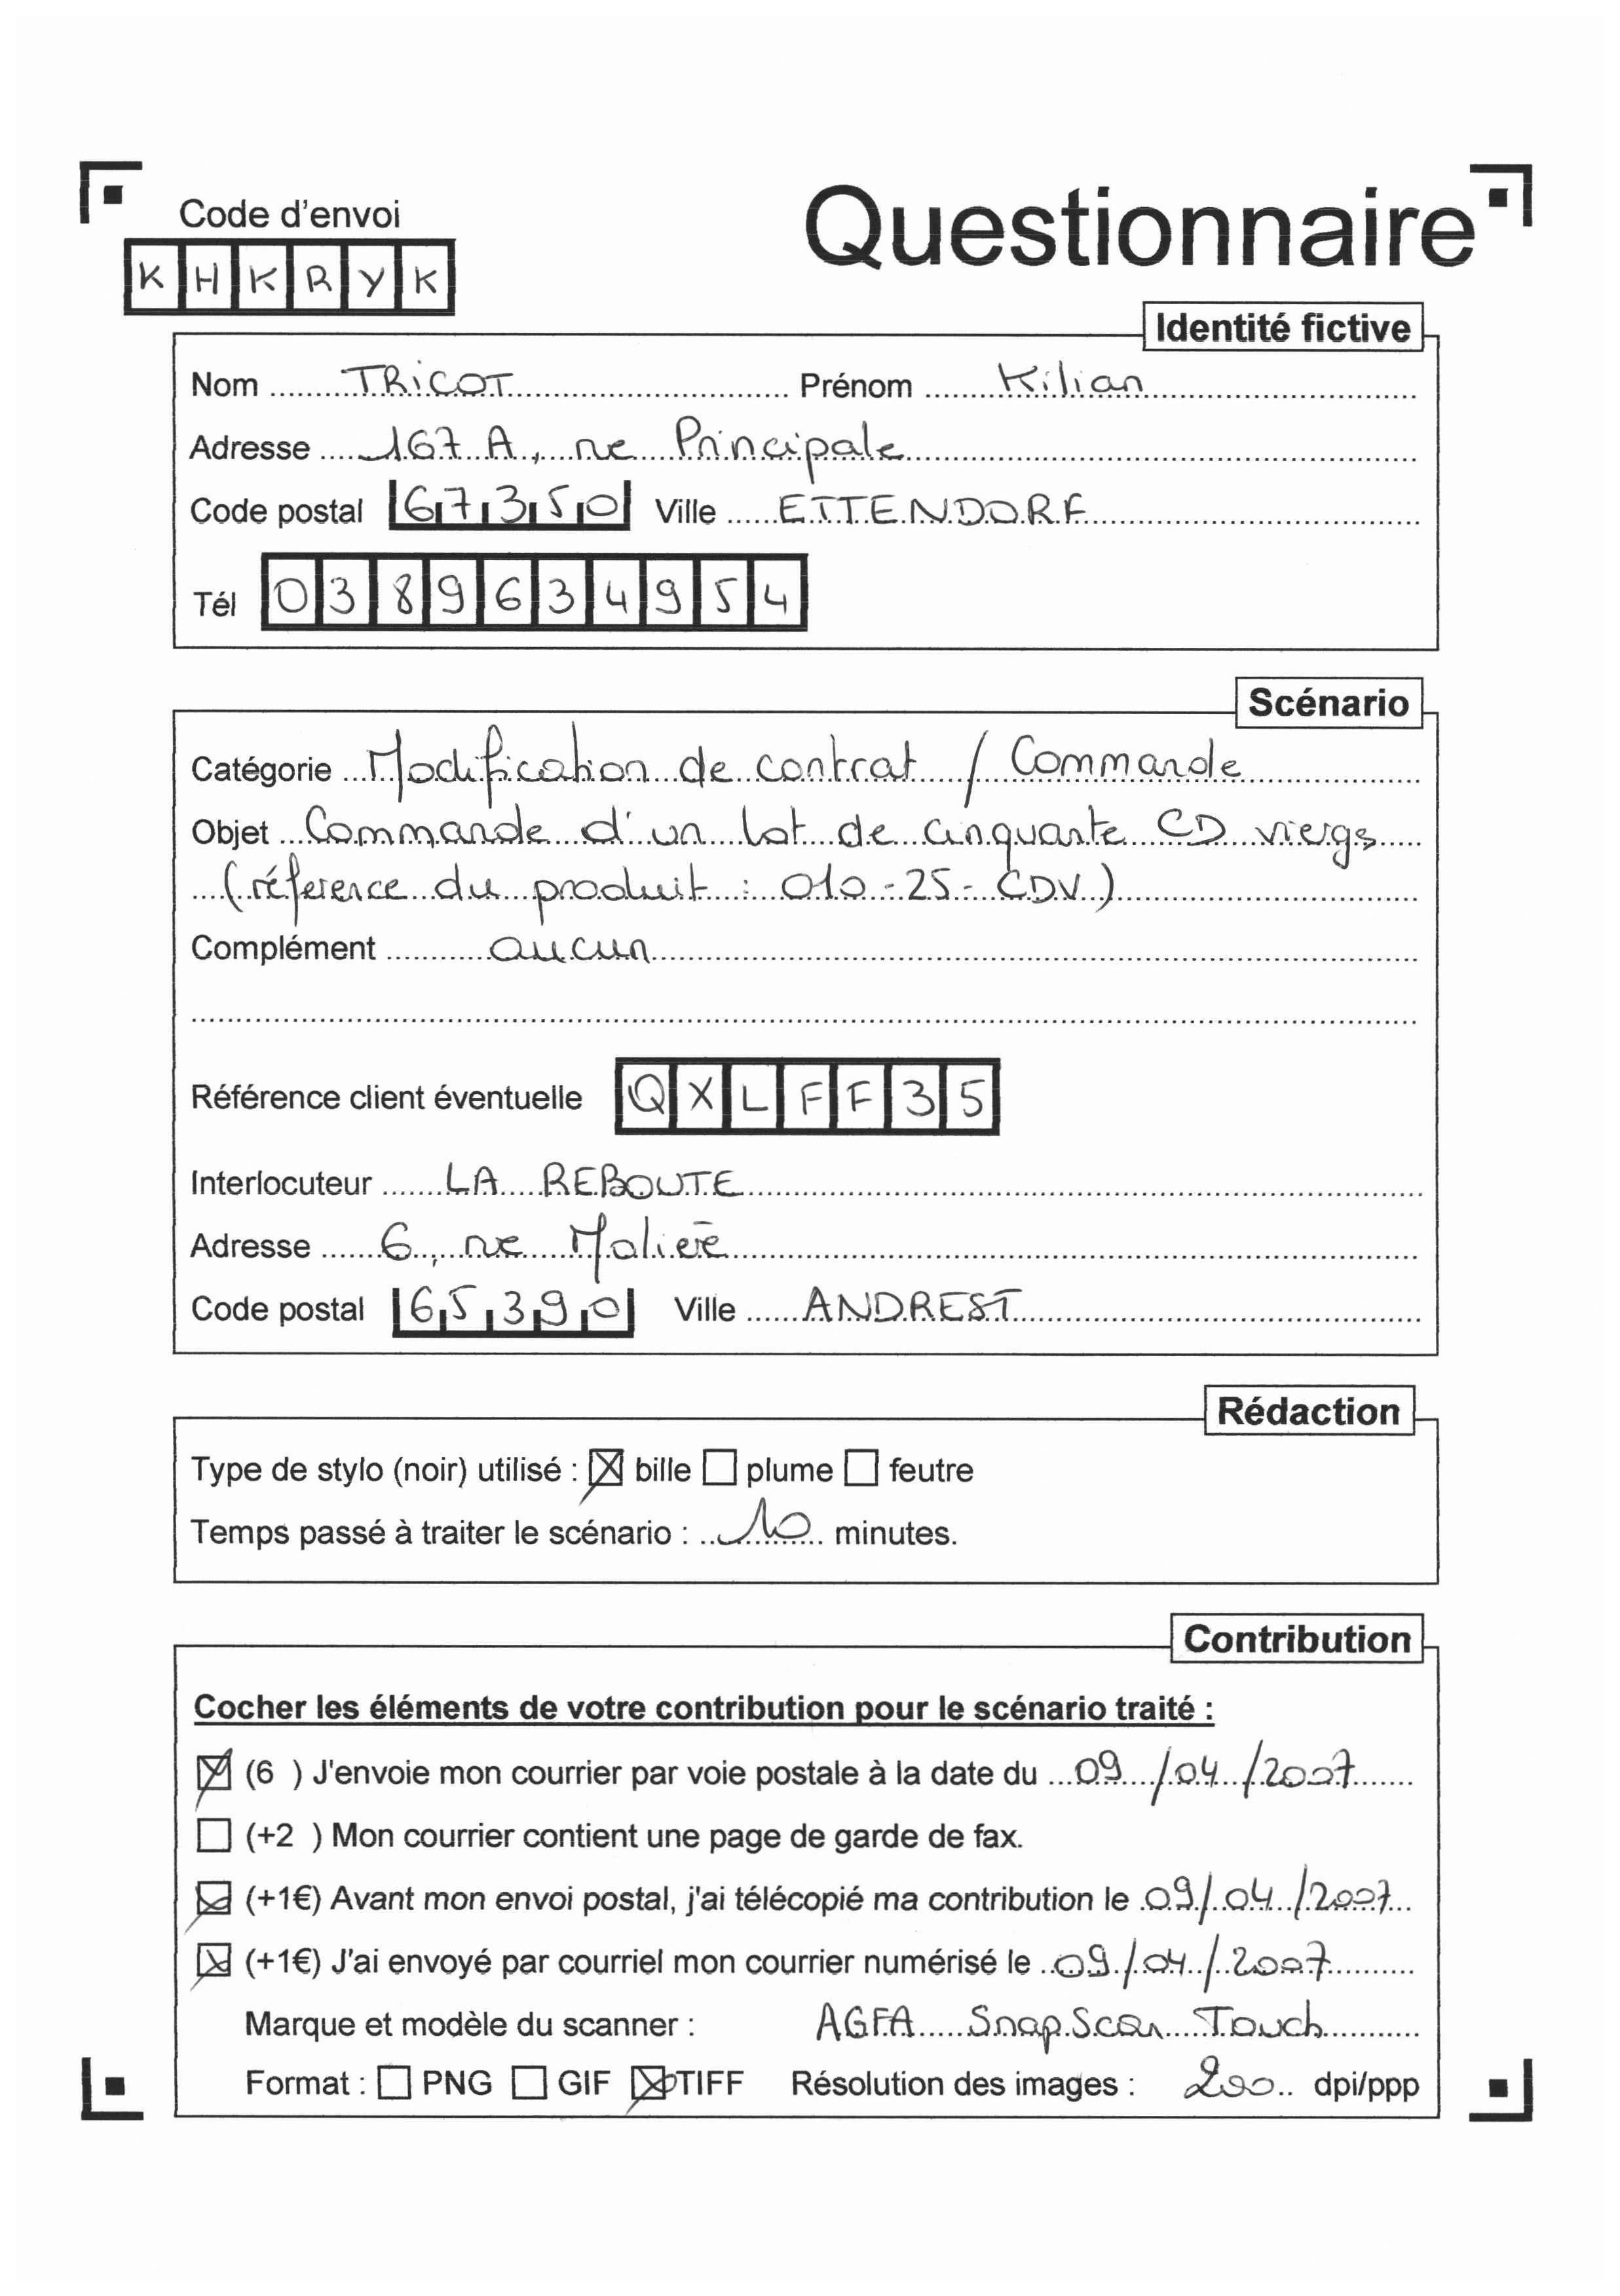 Code d'envoi
Questionnaire
KHKRYK
Identité fictive
Nom TRICOT Prénom Kilian
Adresse 167 A, rue Principale
Code postal 67350 Ville ETTENDORF
Tél 0389634954
Scénario
Catégorie Modification de contrat / Commande
Objet Commande d'un lot de cinquante CD viergs
(réference du produit : 010-25-CDV)
Complément aucun
Référence client éventuelle QXLFF35
Interlocuteur LA REBOUTE
Adresse 6, rue Molière
Code postal 65390 Ville ANDREST
Rédaction
Type de stylo (noir) utilisé : ☒ bille ☐ plume ☐ feutre
Temps passé à traiter le scénario : 10 minutes.
Contribution
Cocher les éléments de votre contribution pour le scénario traité :
☒ (6 ) J'envoie mon courrier par voie postale à la date du 09/04/2007
☐ (+2 ) Mon courrier contient une page de garde de fax.
☒ (+1€) Avant mon envoi postal, j'ai télécopié ma contribution le 09/04/2007
☒ (+1€) J'ai envoyé par courriel mon courrier numérisé le 09/04/2007
Marque et modèle du scanner : AGFA SnapScan Touch
Format : ☐ PNG ☐ GIF ☒ TIFF Résolution des images : 200 dpi/ppp